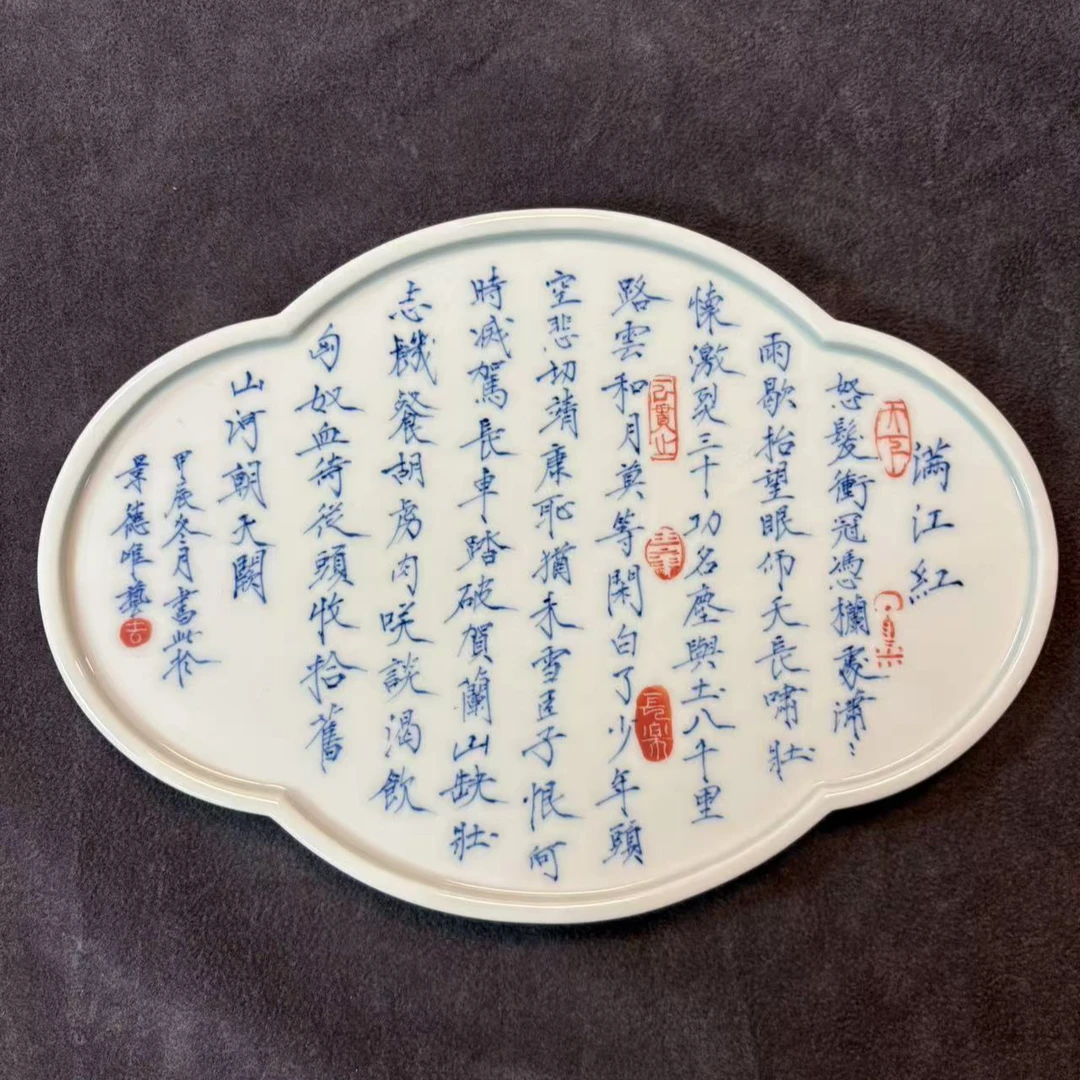 滿江紅
怒髮衝冠憑欄處瀟〻
雨歇抬望眼仰天長嘯壯
懷激烈三十功名塵與土八千里
路雲和月莫等閑白了少年頭
空悲切靖康恥猶未雪臣子恨何
時滅駕長車踏破賀蘭山缺壯
志機餐胡虜肉咲談渴飲
匈奴血待從頭收拾舊
山河朝天闕
甲辰冬月書此於
景德唯藝
吉
長樂